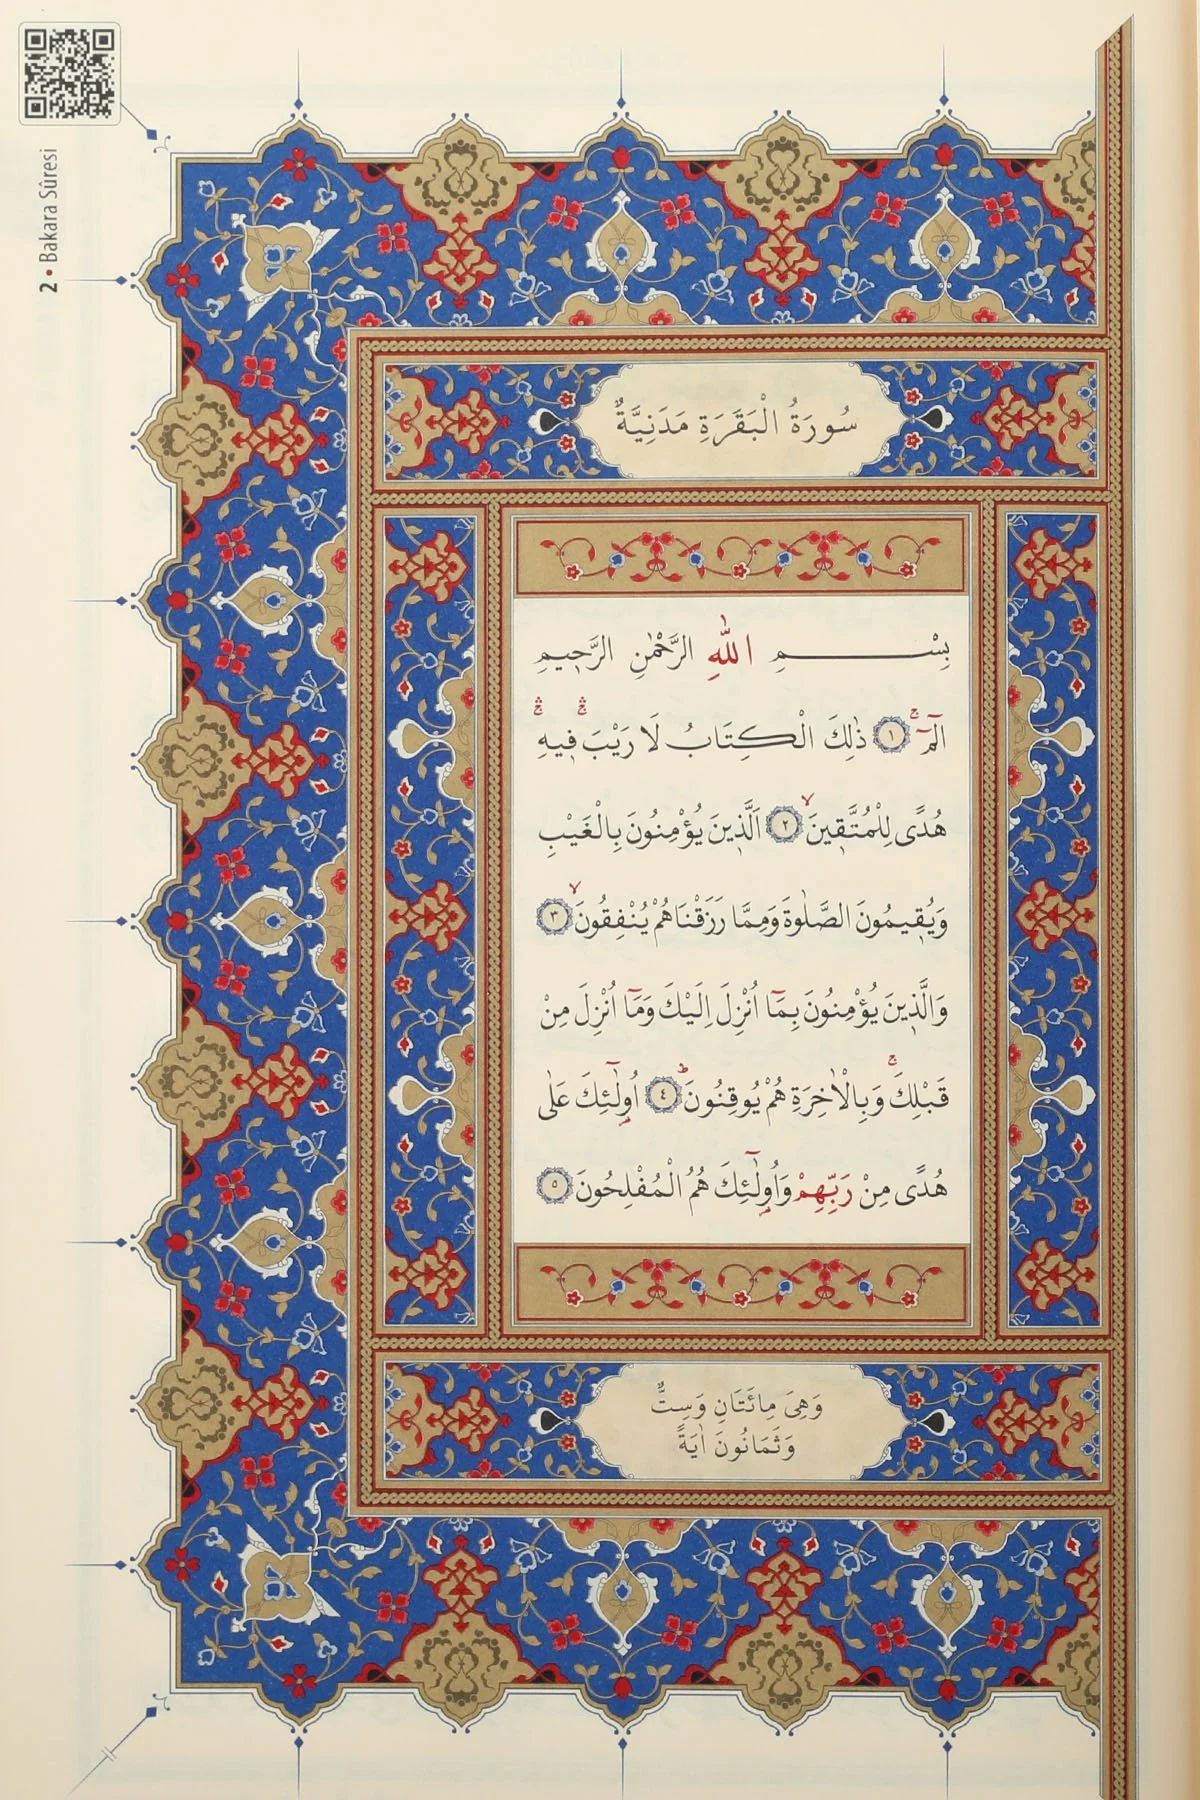 2 • Bakara Sûresi
سُورَةُ الْبَقَرَةِ مَدَنِيَّةٌ
بِسْمِ اللّٰهِ الرَّحْمٰنِ الرَّحٖيمِ
الٓمٓ ۚ ﴿١﴾ ذٰلِكَ الْكِتَابُ لَا رَيْبَ ۛ فٖيهِ ۛ
هُدًى لِلْمُتَّقٖينَ ۙ ﴿٢﴾ اَلَّذٖينَ يُؤْمِنُونَ بِالْغَيْبِ
وَيُقٖيمُونَ الصَّلٰوةَ وَمِمَّا رَزَقْنَاهُمْ يُنْفِقُونَ ۙ ﴿٣﴾
وَالَّذٖينَ يُؤْمِنُونَ بِمَٓا اُنْزِلَ اِلَيْكَ وَمَٓا اُنْزِلَ مِنْ
قَبْلِكَ ۚ وَبِالْاٰخِرَةِ هُمْ يُوقِنُونَ ؕ ﴿٤﴾ اُو۬لٰٓئِكَ عَلٰى
هُدًى مِنْ رَبِّهِمْ وَاُو۬لٰٓئِكَ هُمُ الْمُفْلِحُونَ ﴿٥﴾
وَهِيَ مِائَتَانِ وَسِتٌّ
وَثَمَانُونَ اٰيَةً